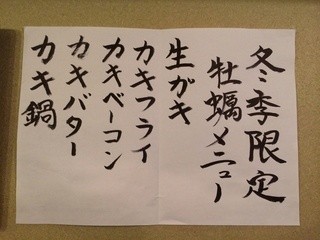 冬季限定
牡蠣メニュー
生ガキ
カキフライ
カキベーコン
カキバター
カキ鍋